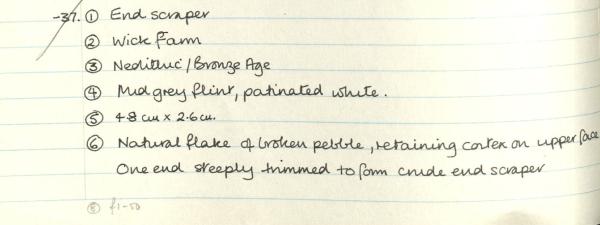 -37. ① End scraper
② Wick Farm
③ Neolithic/Bronze Age
④ Mid grey flint, patinated white.
⑤ 4.8 cm x 2.6 cm.
⑥ Natural flake of broken pebble, retaining cortex on upper face
One end steeply trimmed to form crude end scraper
⑧ f1-50